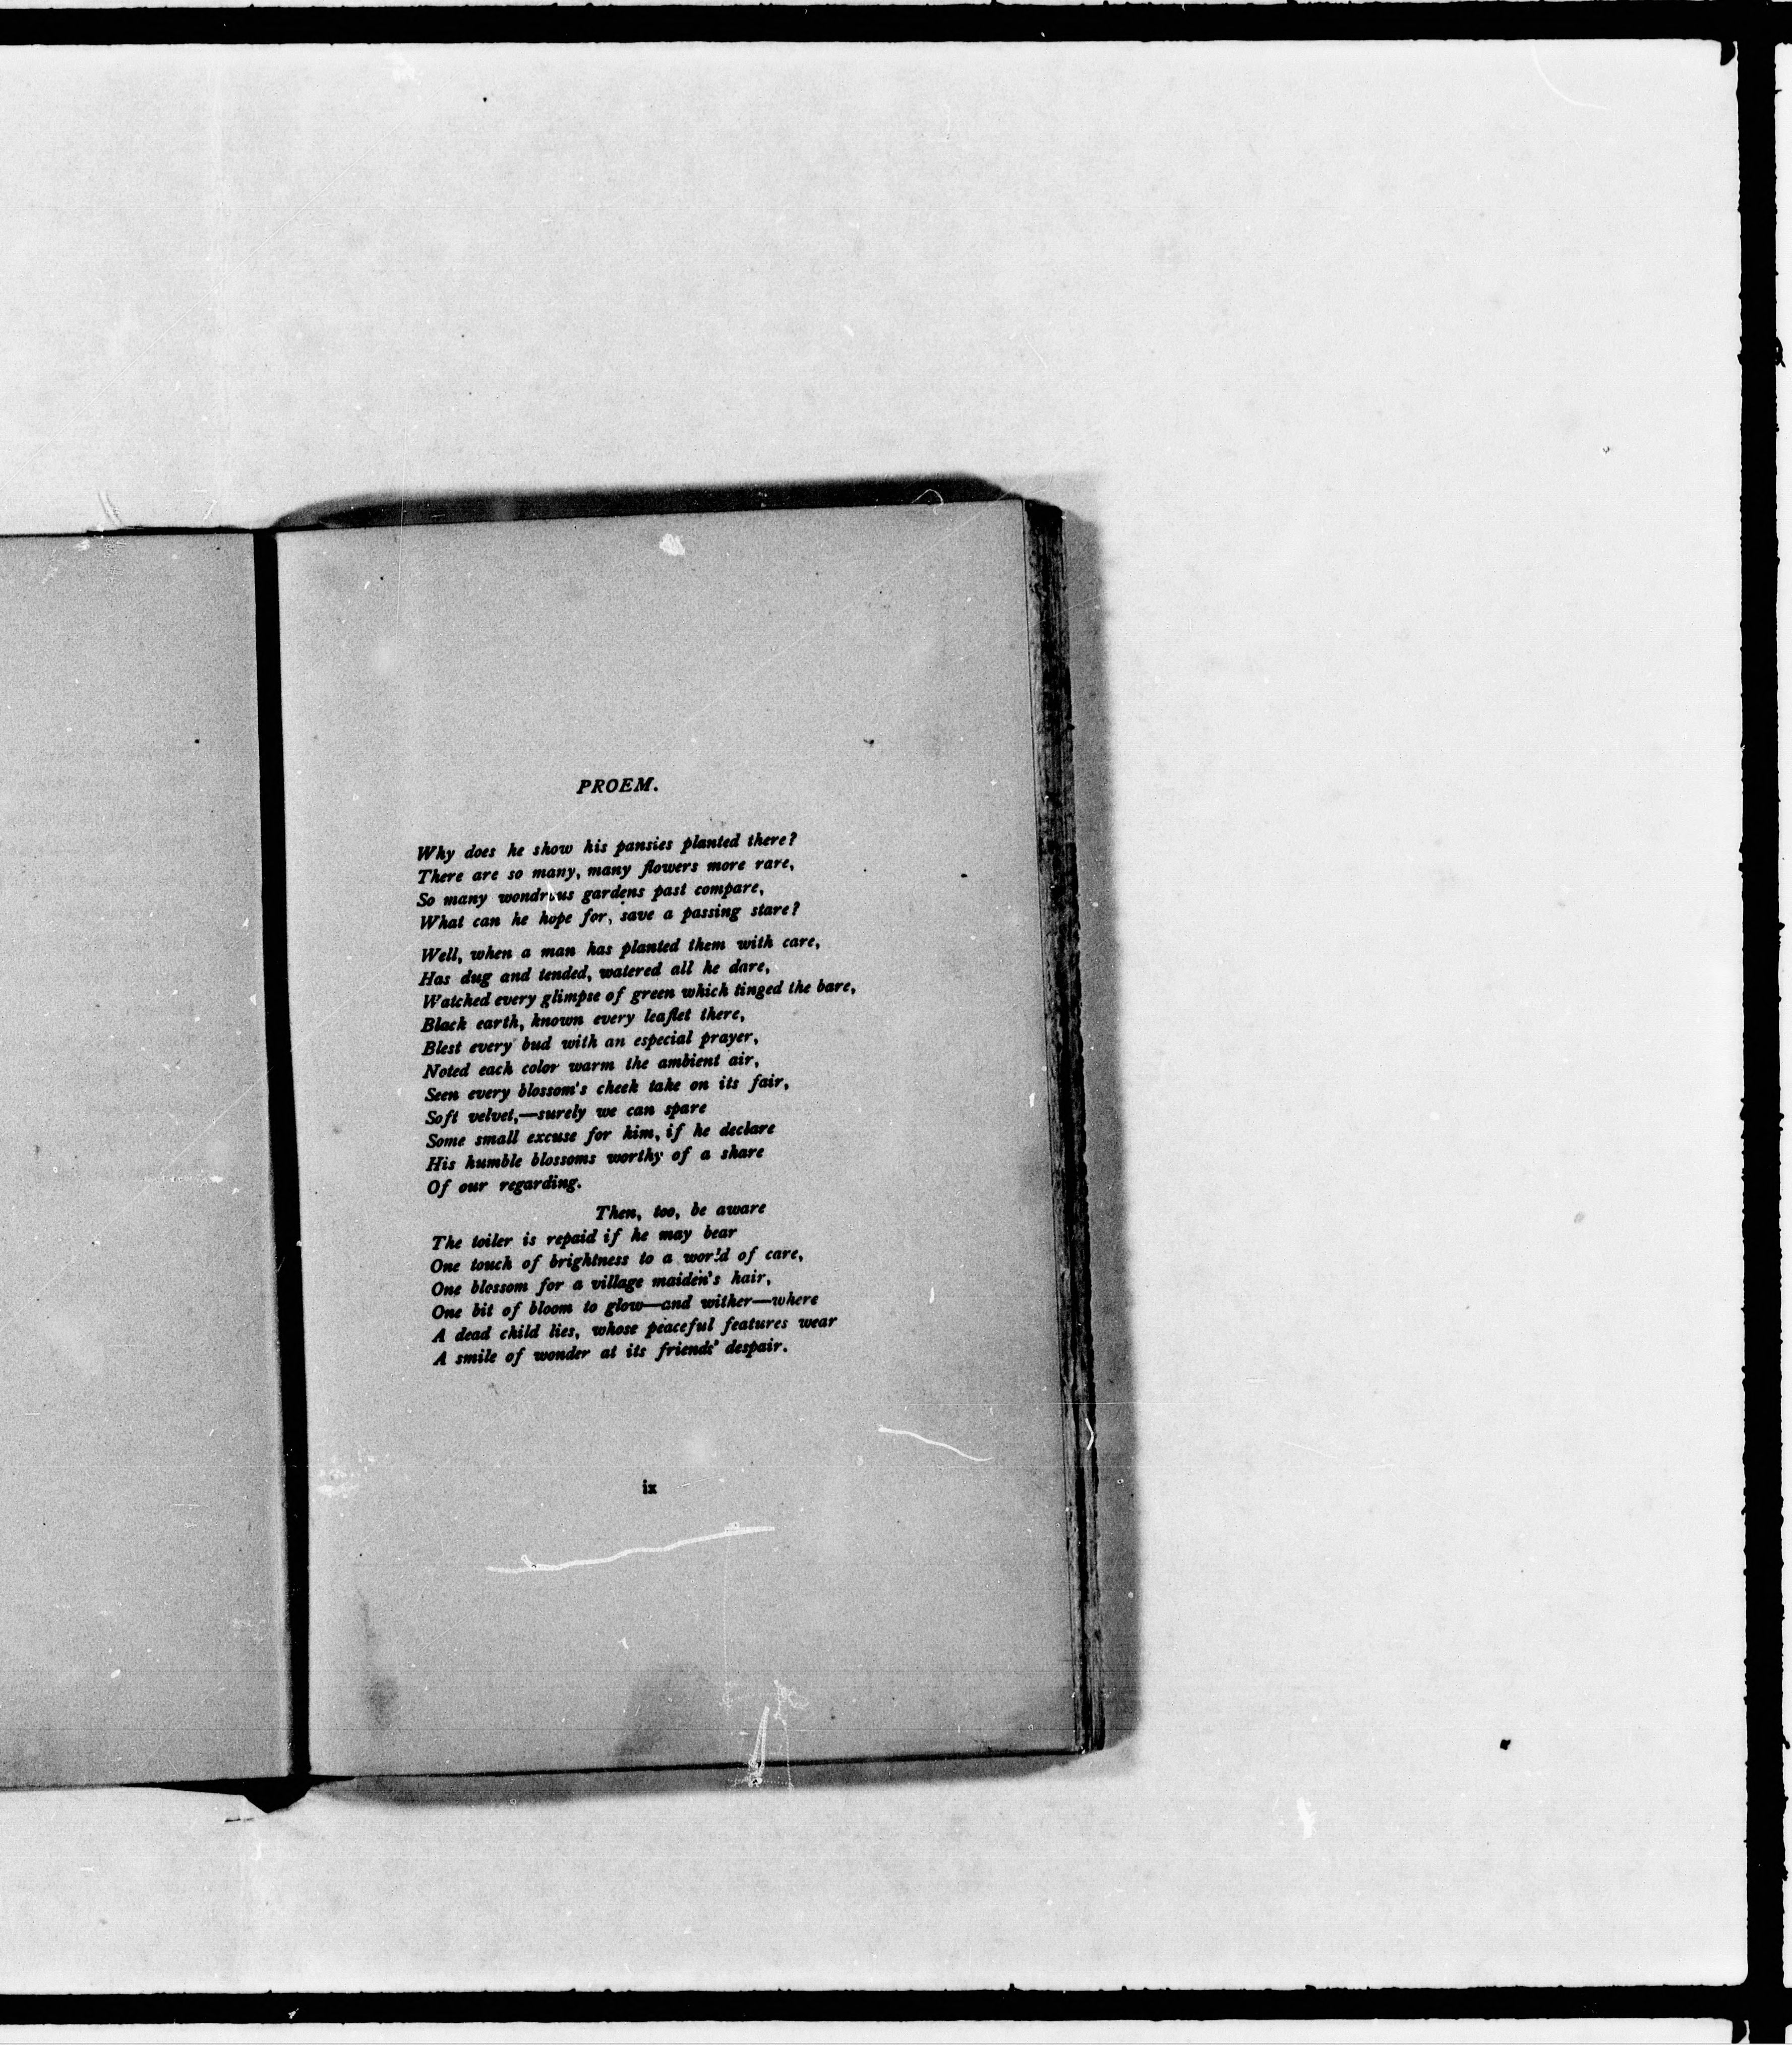 PROEM.
Why does he show his pansies planted there?
There are so many, many flowers more rare,
So many wondrous gardens past compare,
What can he hope for, save a passing stare?
Well, when a man has planted them with care,
Has dug and tended, watered all he dare,
Watched every glimpse of green which tinged the bare,
Black earth, known every leaflet there,
Blest every bud with an especial prayer,
Noted each color warm the ambient air,
Seen every blossom's cheek take on its fair,
Soft velvet,—surely we can spare
Some small excuse for him, if he declare
His humble blossoms worthy of a share
Of our regarding.
Then, too, be aware
The toiler is repaid if he may bear
One touch of brightness to a world of care,
One blossom for a village maiden's hair,
One bit of bloom to glow—and wither—where
A dead child lies, whose peaceful features wear
A smile of wonder at its friends' despair.
ix